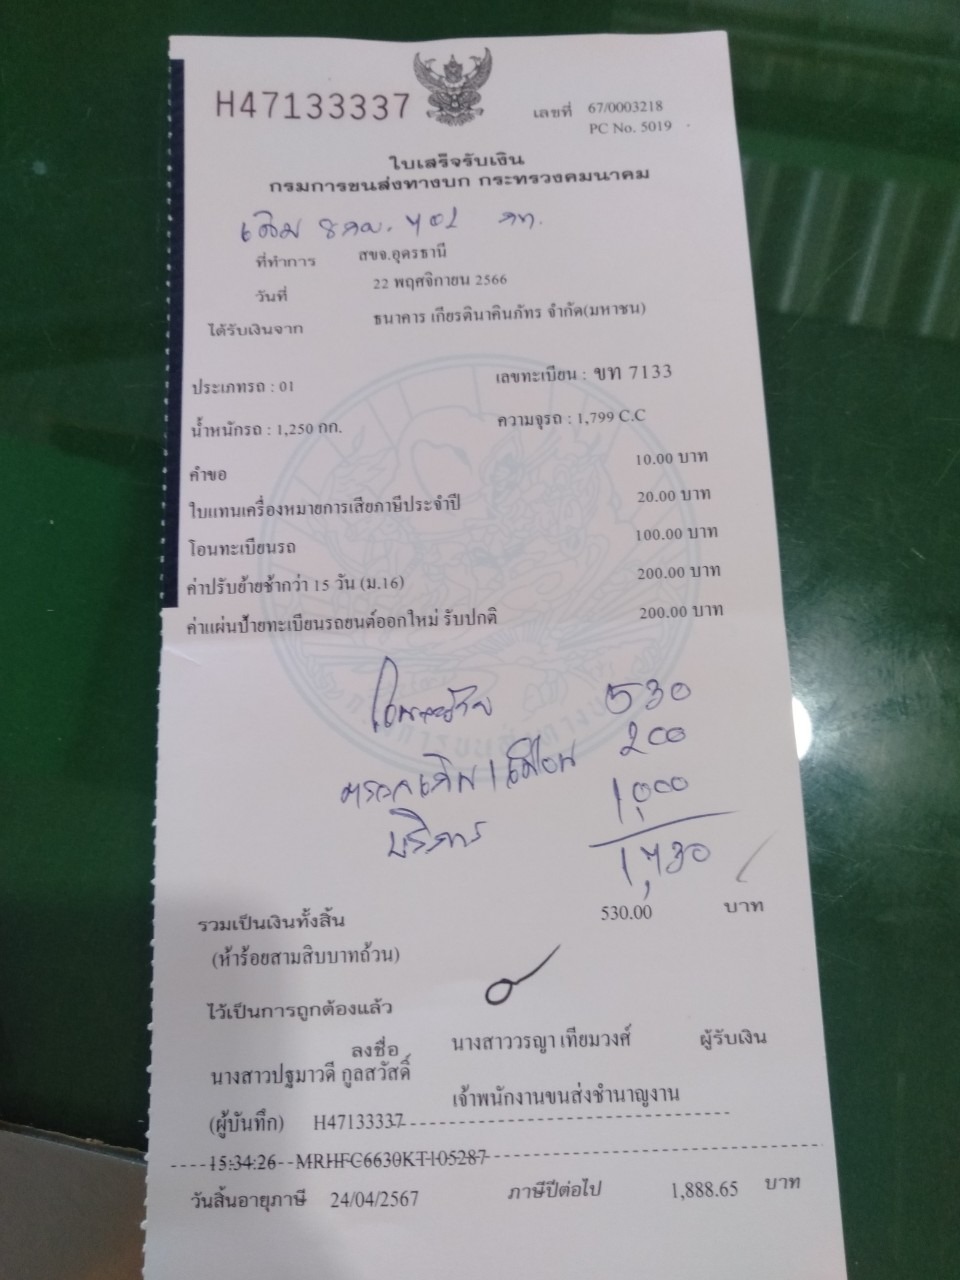 H47133337
เลขที่ 67/0003218
PC No. 5019
ใบเสร็จรับเงิน
กรมการขนส่งทางบก กระทรวงคมนาคม
เดิม
ที่ทำการ สขจ.อุดรธานี
วันที่ 22 พฤศจิกายน 2566
ได้รับเงินจาก ธนาคาร เกียรตินาคินภัทร จำกัด(มหาชน)
ประเภทรถ : 01 เลขทะเบียน : ขท 7133
น้ำหนักรถ : 1,250 กก. ความจุรถ : 1,799 C.C
คำขอ 10.00 บาท
ใบแทนเครื่องหมายการเสียภาษีประจำปี 20.00 บาท
โอนทะเบียนรถ 100.00 บาท
ค่าปรับย้ายช้ากว่า 15 วัน (ม.16) 200.00 บาท
ค่าแผ่นป้ายทะเบียนรถยนต์ออกใหม่ รับปกติ 200.00 บาท
530
200
บริการ 1,000
1,730
รวมเป็นเงินทั้งสิ้น 530.00 บาท
(ห้าร้อยสามสิบบาทถ้วน)
ไว้เป็นการถูกต้องแล้ว
ลงชื่อ นางสาววรญา เทียมวงศ์ ผู้รับเงิน
นางสาวปฐมาวดี กูลสวัสดิ์
เจ้าพนักงานขนส่งชำนาญงาน
(ผู้บันทึก) H47133337
15:34:26 MRHFC6630KT105287
วันสิ้นอายุภาษี 24/04/2567 ภาษีปีต่อไป 1,888.65 บาท